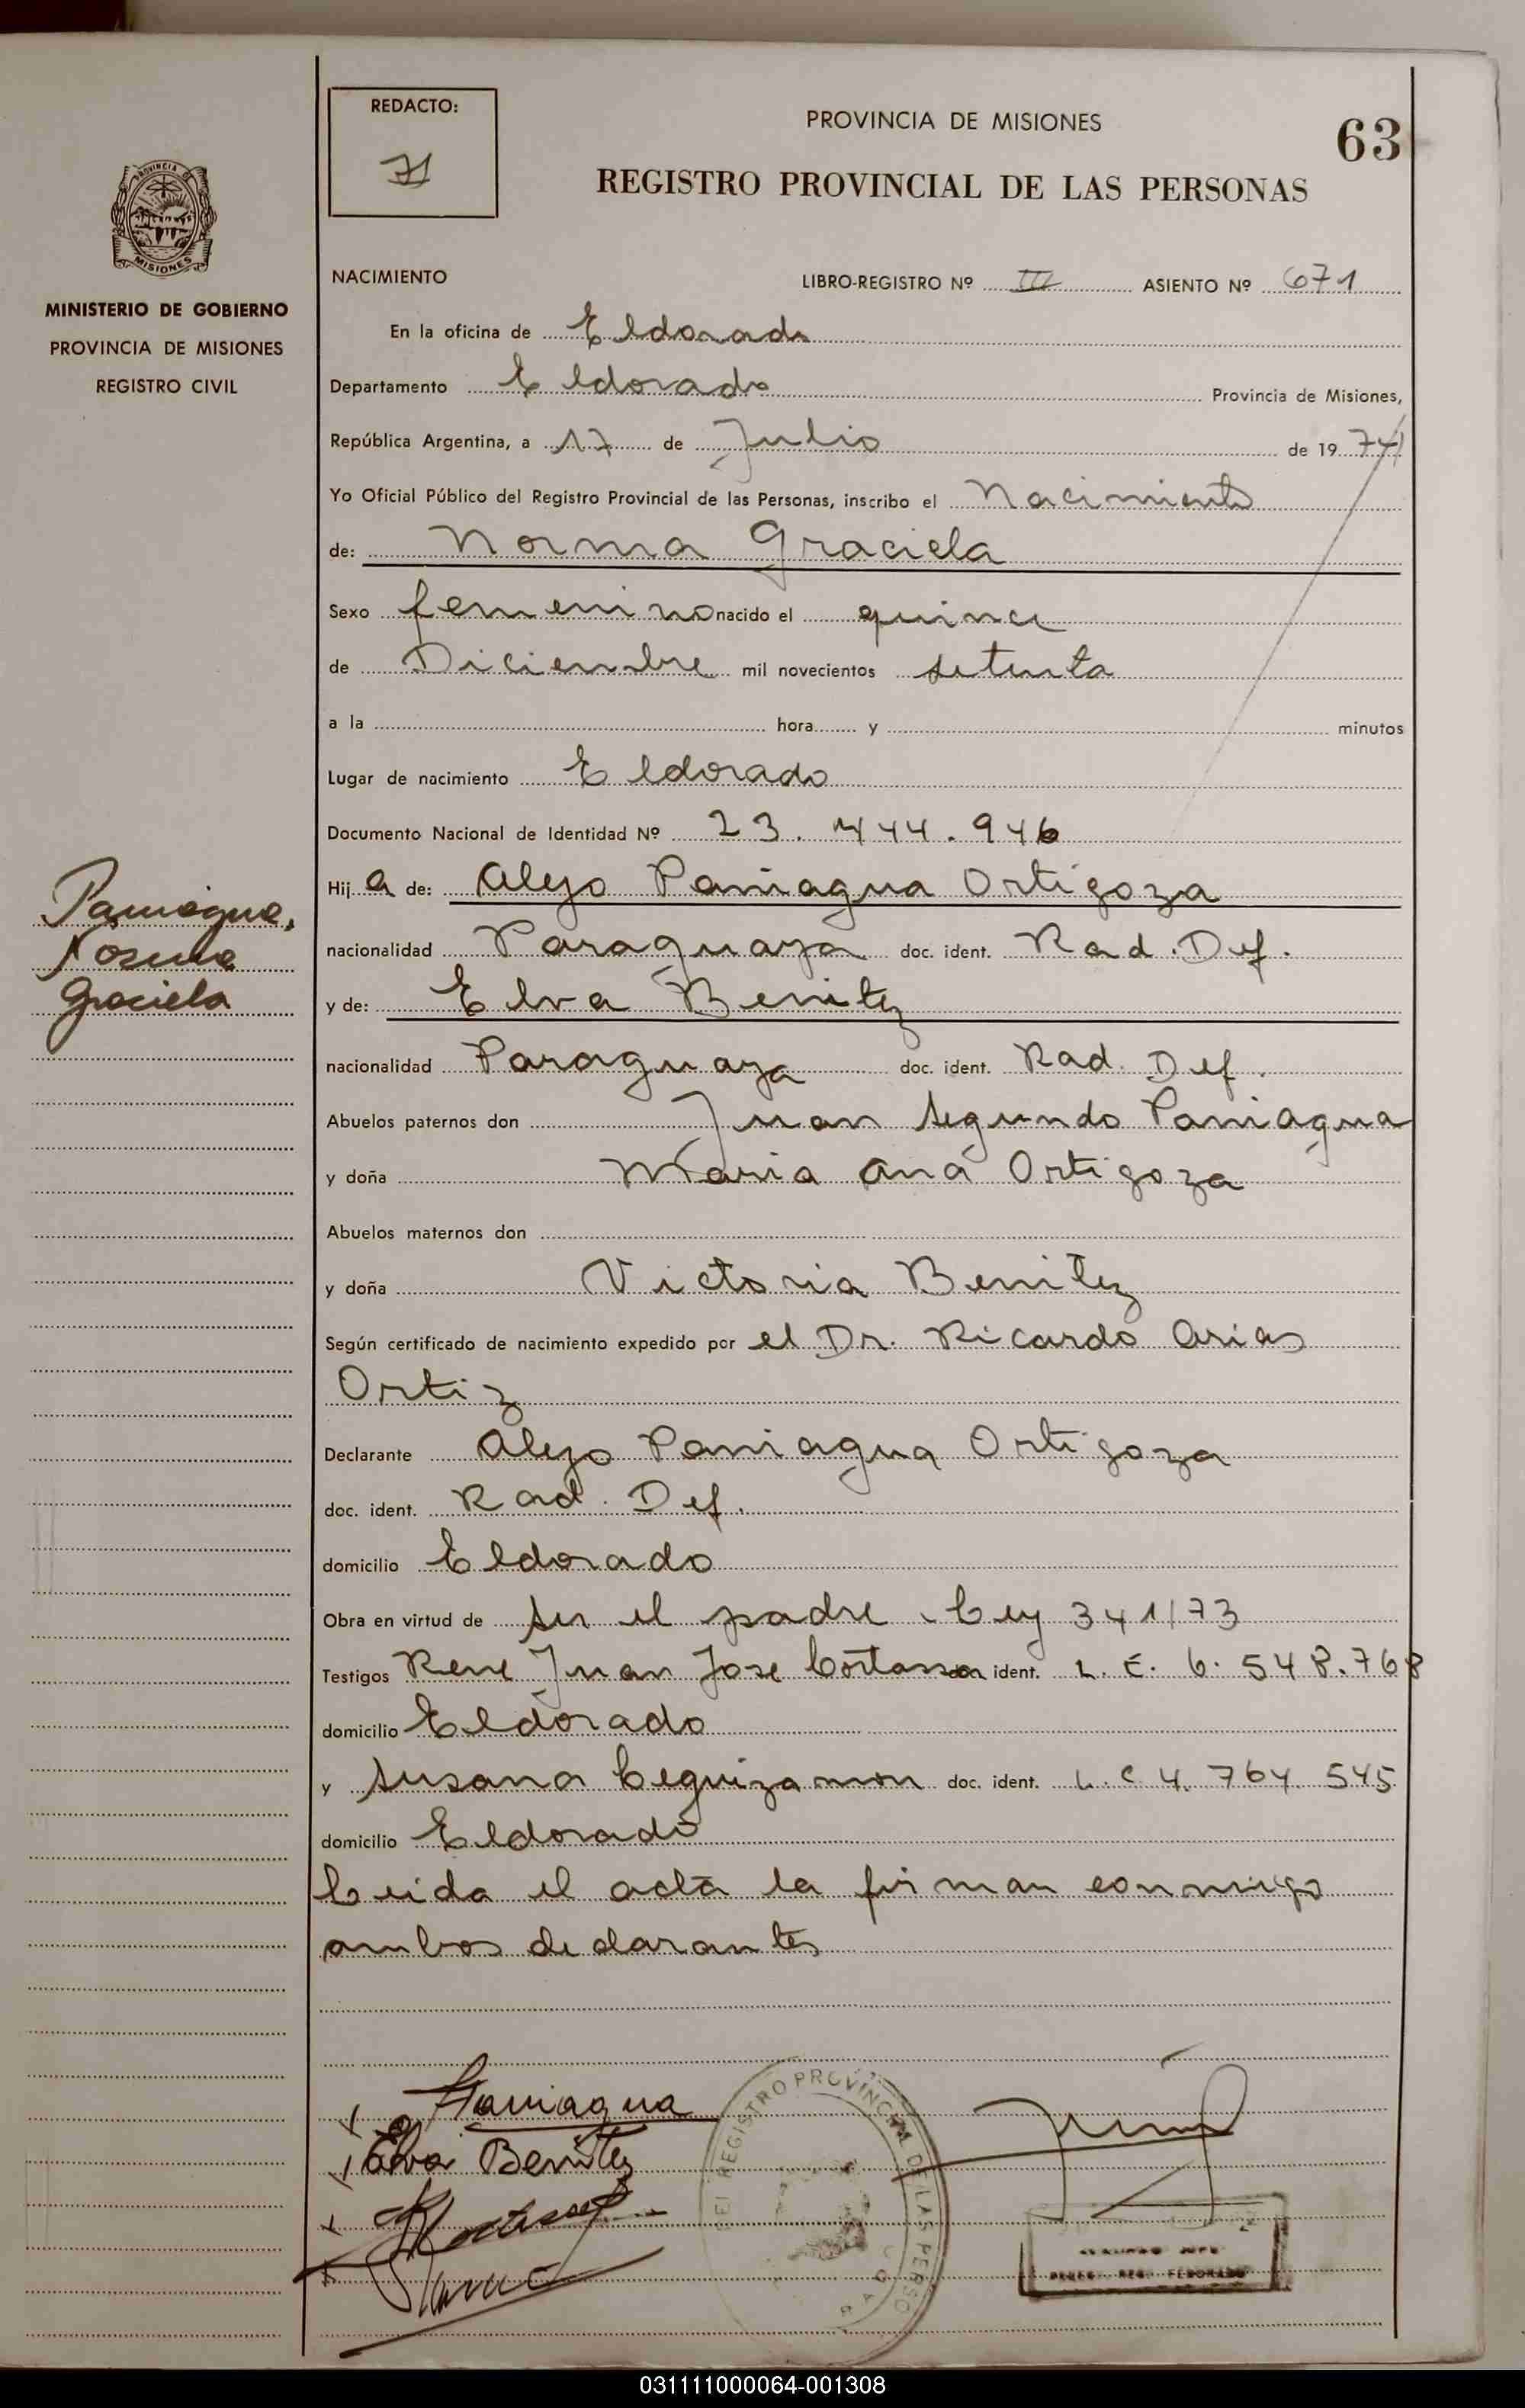 REDACTO:
71
PROVINCIA DE MISIONES
63
REGISTRO PROVINCIAL DE LAS PERSONAS
PROVINCIA DE
MISIONES
MINISTERIO DE GOBIERNO
PROVINCIA DE MISIONES
REGISTRO CIVIL
NACIMIENTO LIBRO-REGISTRO Nº III ASIENTO Nº 671
En la oficina de Eldorado
Departamento Eldorado Provincia de Misiones,
República Argentina, a 17 de Julio de 1974
Yo Oficial Público del Registro Provincial de las Personas, inscribo el Nacimiento
de: Norma Graciela
Sexo femenino nacido el quince
de Diciembre mil novecientos setenta
a la hora y minutos
Lugar de nacimiento Eldorado
Documento Nacional de Identidad Nº 23.444.946
Hij a de: Alejo Paniagua Ortigoza
Paniagua,
Norma
Graciela
nacionalidad Paraguaya doc. ident. Rad. Def.
y de: Elva Benitez
nacionalidad Paraguaya doc. ident. Rad. Def.
Abuelos paternos don Juan Segundo Paniagua
y doña Maria Ana Ortigoza
Abuelos maternos don
y doña Victoria Benitez
Según certificado de nacimiento expedido por el Dr. Ricardo Arias
Ortiz
Declarante Alejo Paniagua Ortigoza
doc. ident. Rad. Def.
domicilio Eldorado
Obra en virtud de ser el padre. Ley 341/73
Testigos Rene Juan Jose Cortassa ident. L. E. 6.548.768
domicilio Eldorado
y Susana Leguizamon doc. ident. L. C 4.764 545
domicilio Eldorado
Leida el acta la firman conmigo
ambos declarantes
Paniagua
Elva Benitez
REGISTRO PROVINCIAL DE LAS PERSO
031111000064-001308